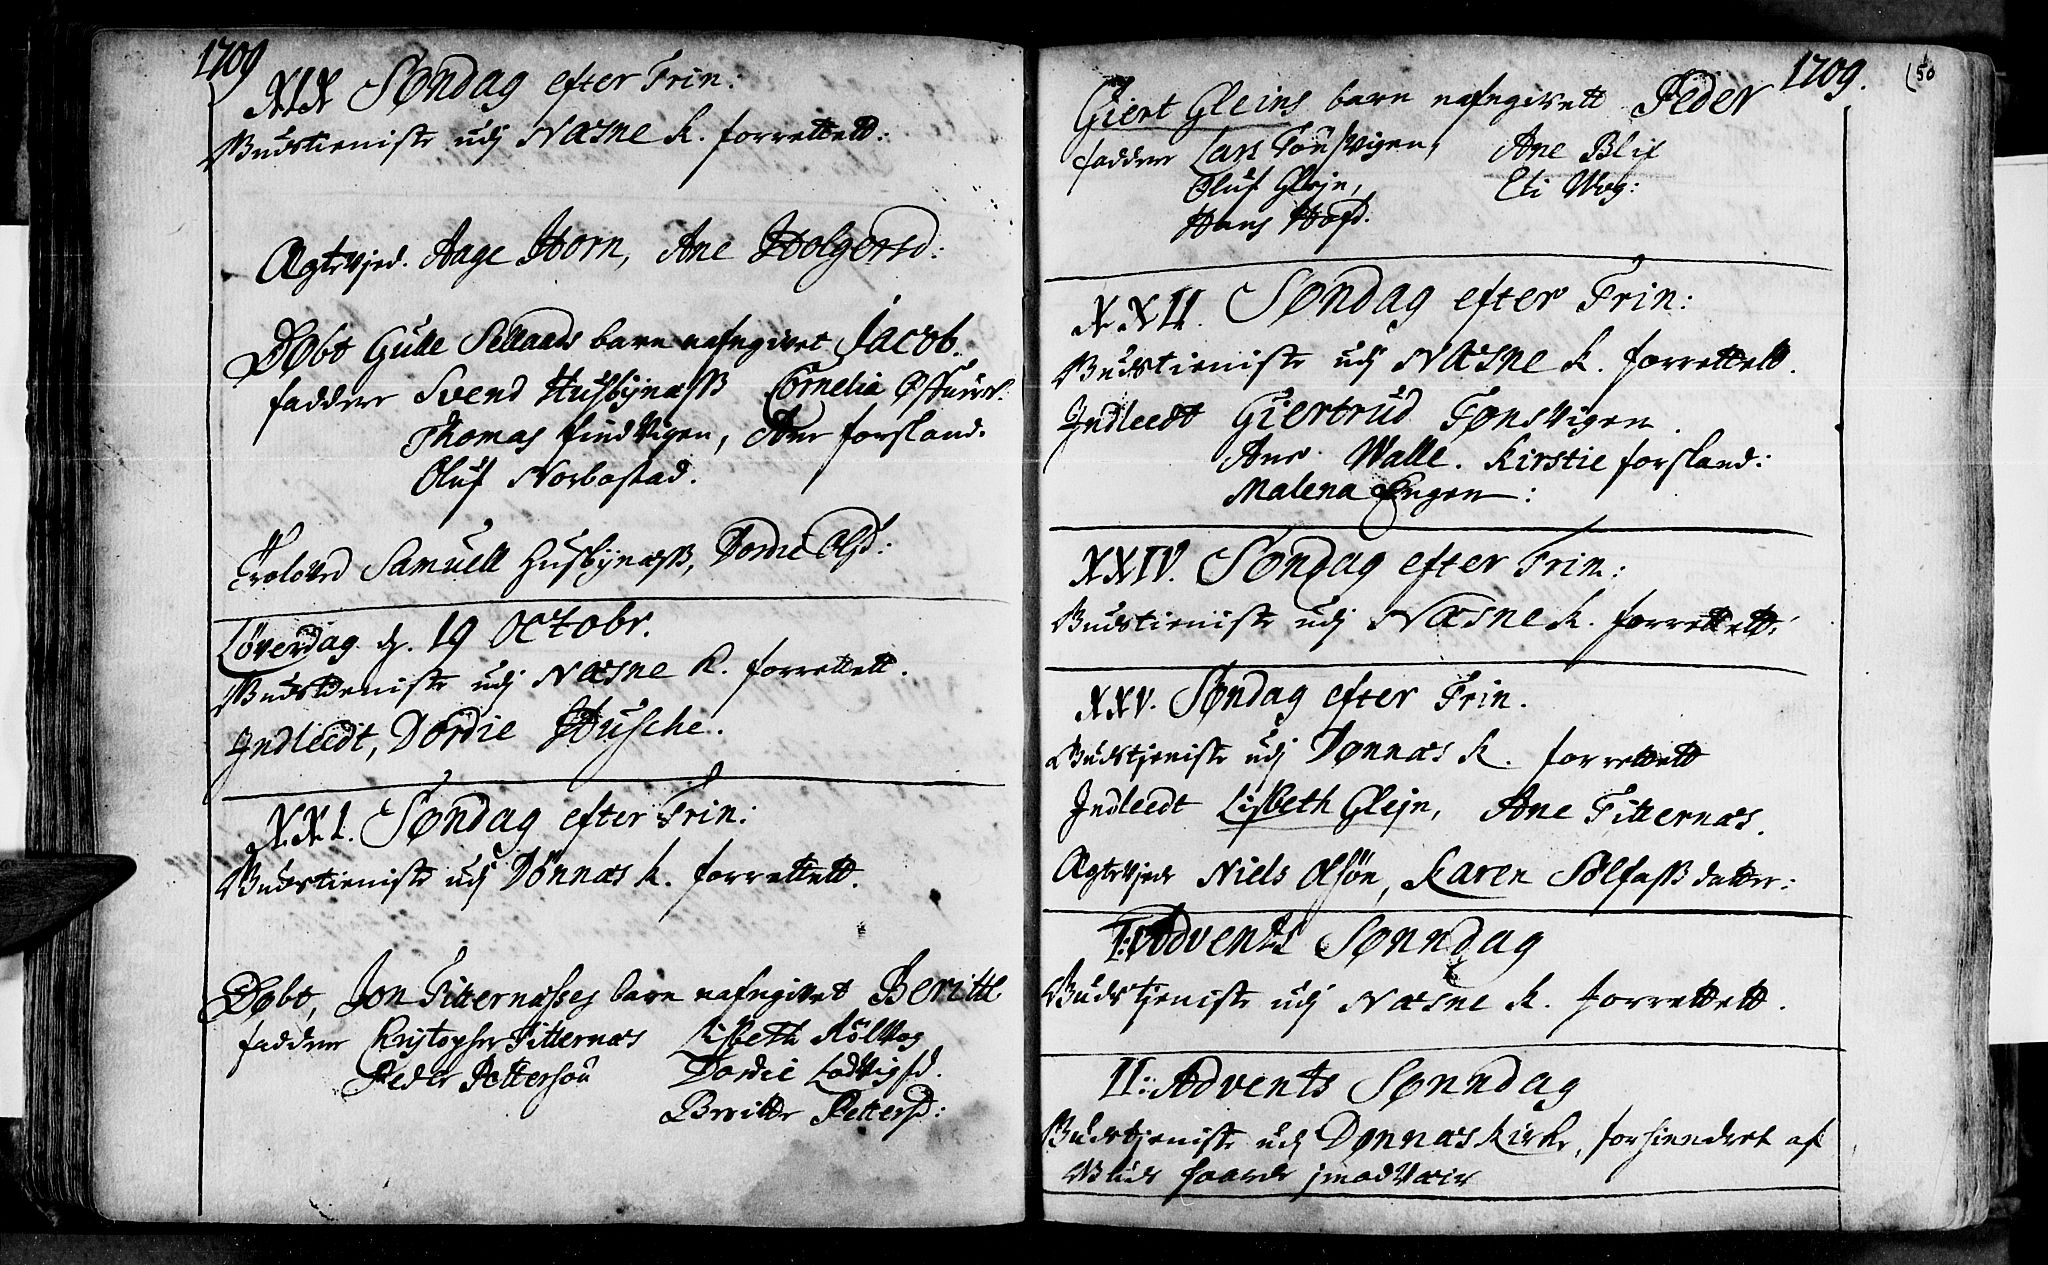 1709
XIX Søndag efter Trin:
Gudstieniste udj Næsne K. forrettett:
Ægteviede. Aage Horn, Ane Holgersd:
Døbt Gulle barn nafngivet Jacob.
faddere Svend Husbynæss Cornelia
Thomas findvigen, Ane forsland.
Oluf Norbostad.
Troloved Samuell Husbynæss, Dordie Olsd:
Løverdag d. 19 Octobr.
Gudstieniste udj Næsne K. forrettett.
Indleedt, Dordie Husche.
XXI. Søndag efter Trin:
Gudstieniste udj Dönnæs K. forrettett.
Døbt, Jon Titternæsses barn nafngivet Beritte
faddere Christopher Titternæs Lisbeth Rölvog
Peder Pettersön Dordie Lodvigsd.
Beritte Pettersd:
1709.
Giert Gleins barn nafngivett Peder
faddere Lars Tönsvigen, Ane Blix
Oluf Glejn, Eli Wog:
Hans Hofd.
XXII. Søndag efter Trin:
Gudstieniste udj Næsne K. forrettett.
Indleedt Giertrud Tønsvigen.
Ane Walle. Kirstie forsland:
Malena Engen:
XXIV. Søndag efter Trin:
Gudstieniste udj Næsne K. forrettett:
XXV. Søndag efter Trin.
Gudstjeniste udj Dønnæs K. forrettett
Indleedt Lisbeth Glejn, Ane Titternæs.
Ægteviede Niels Olsön, Karen Sølfæssdatter:
I: Advents Sønndag
Gudstjeniste udj Næsne K. forrettett.
II: Advents Sønndag
Gudstjeniste udj Dønnæs Kirke, forhiendret af
Wind haarde